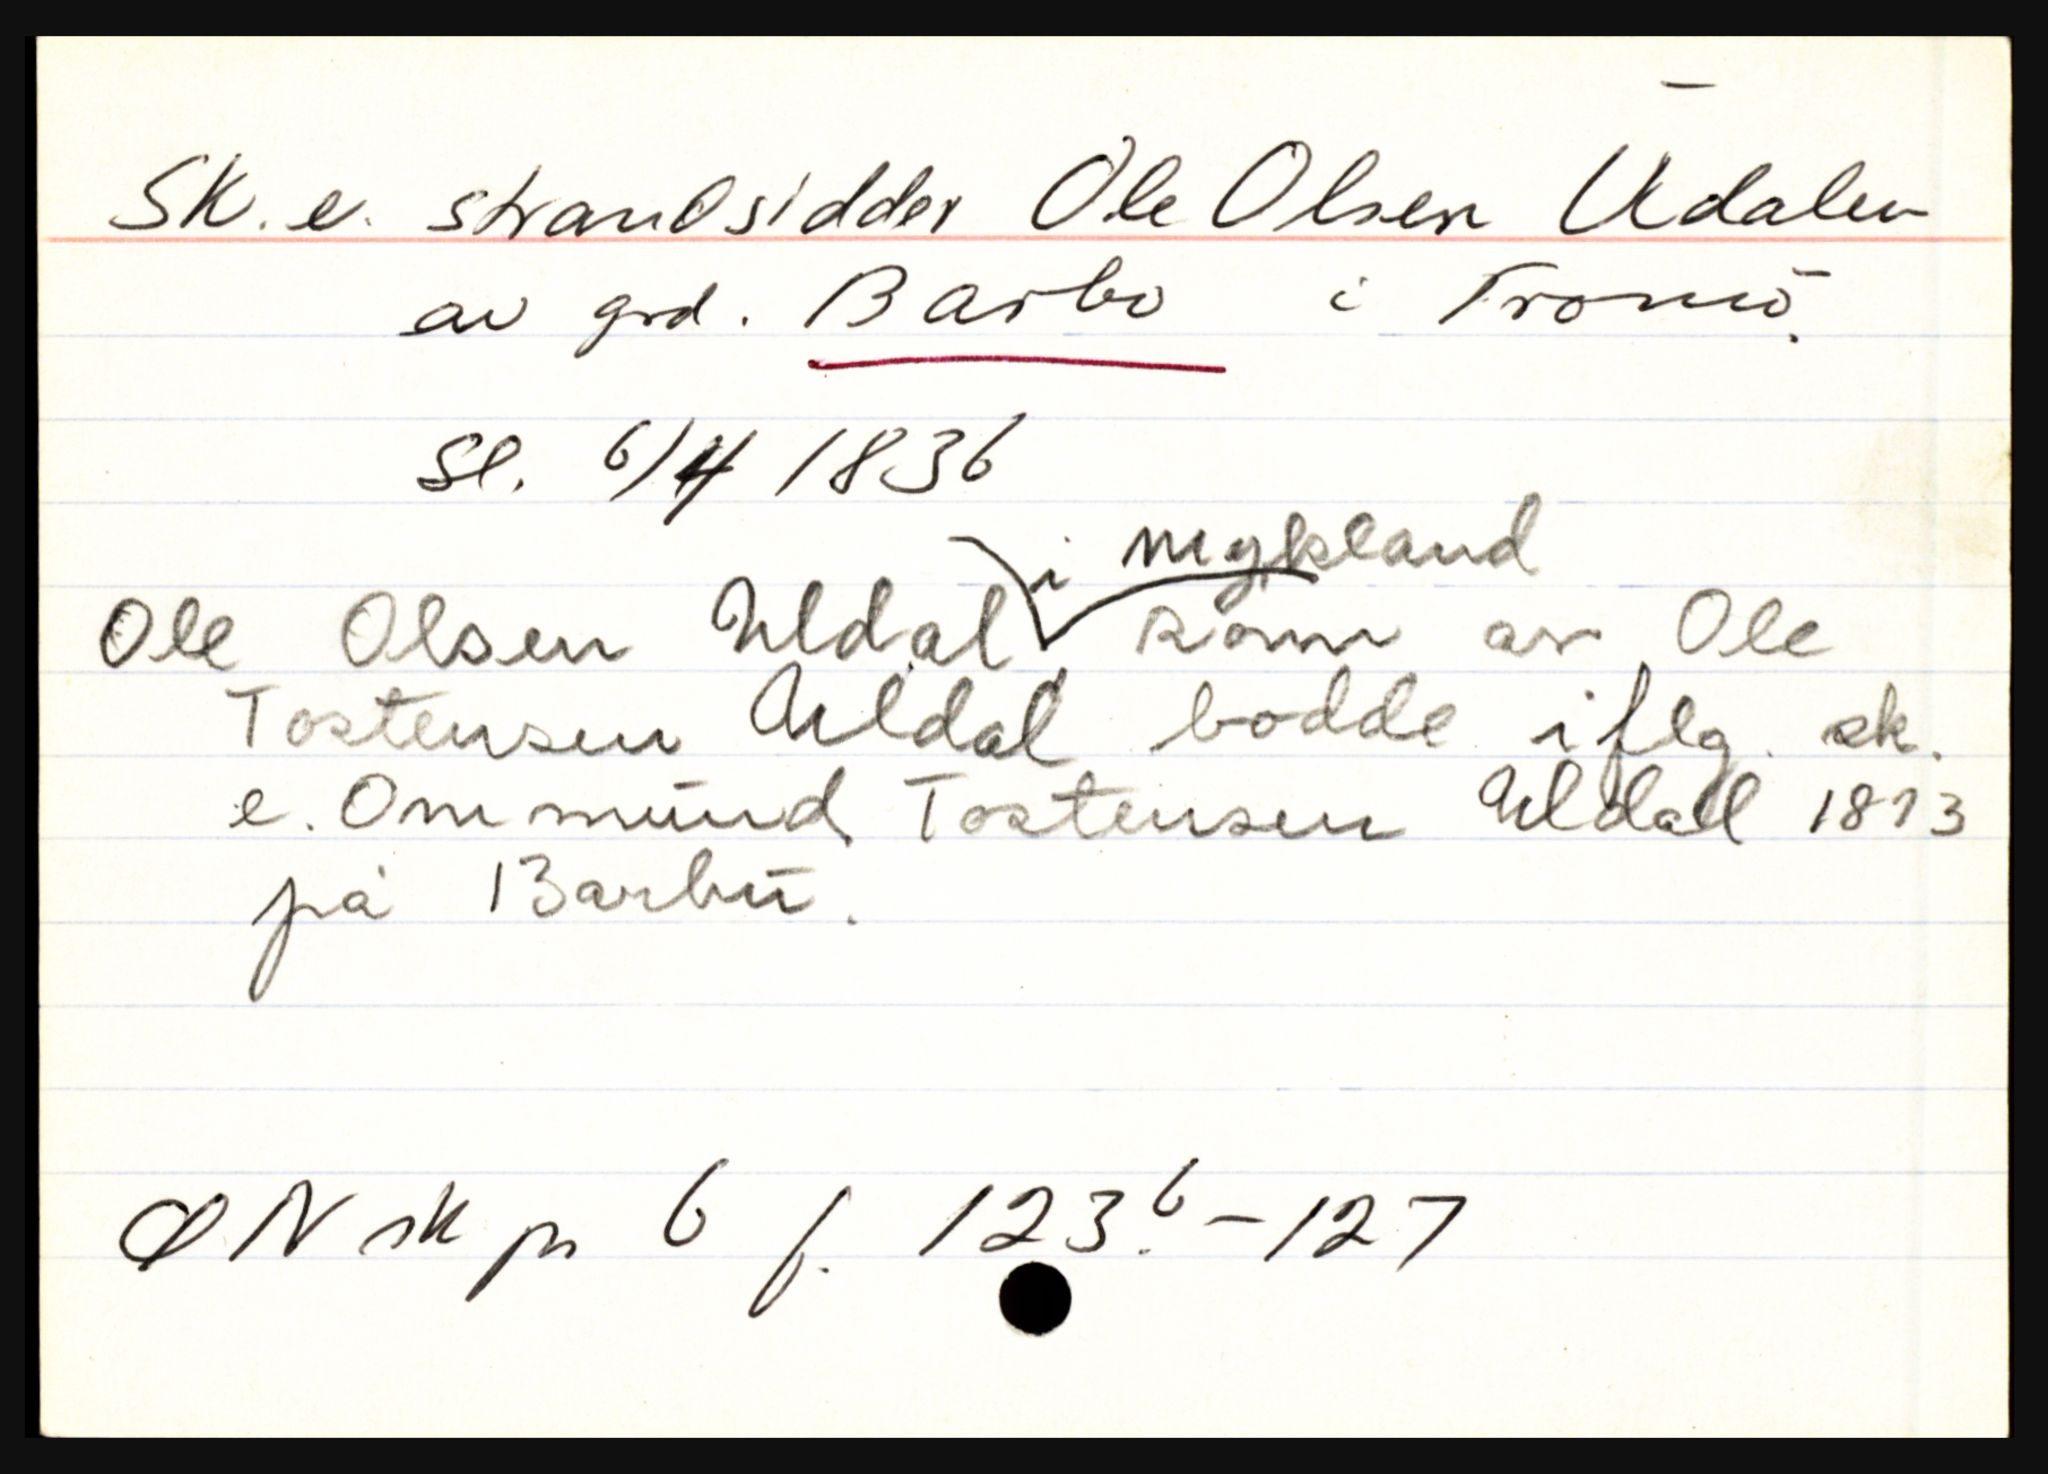 Sk. e. strandsidder Ole Olsen Udalen
av grd. Barbo i Tromö.
Sl. 6/4 1836
i Mykland
Ole Olsen Uldal sønn av Ole
Tostensen Uldal bodde iflg. sk.
e. Ommund Tostensen Uldall 1813
på Barbu.
ØN sk pr 6 f. 123.b-127